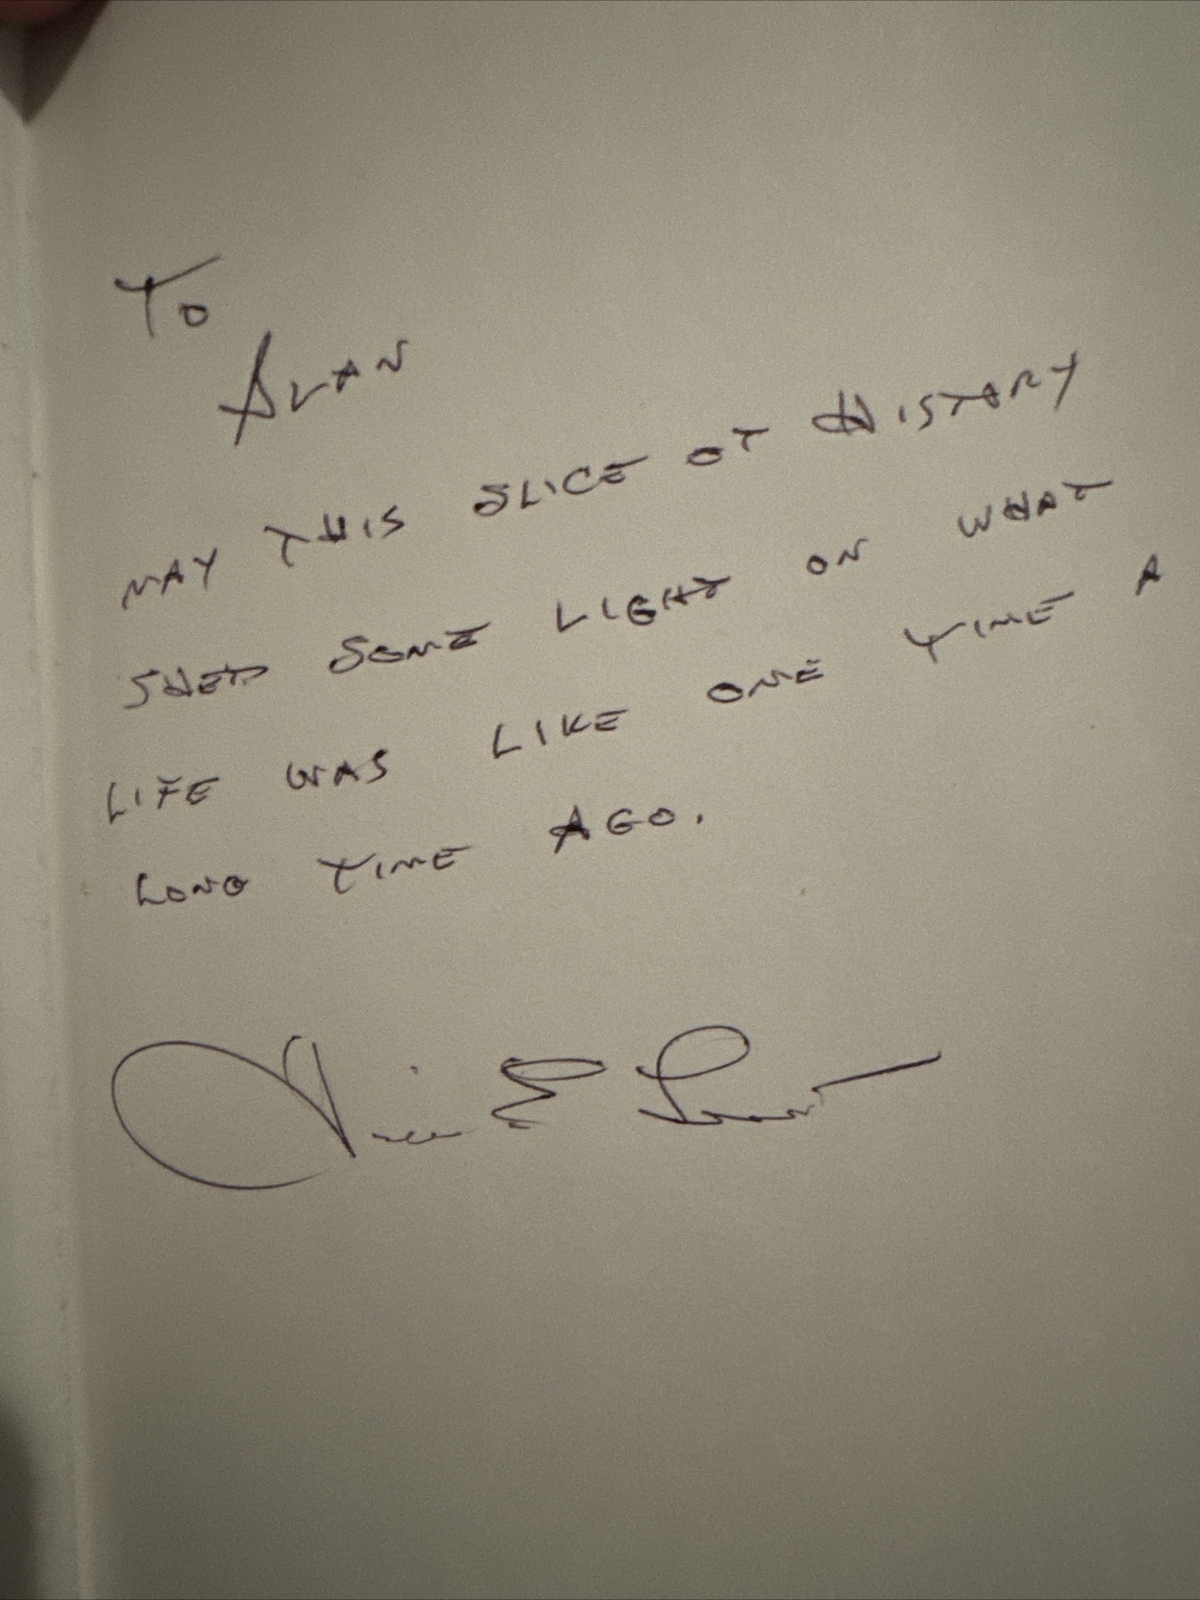 To
ALAN
MAY THIS SLICE OF HISTORY
SHED SOME LIGHT ON WHAT
LIFE WAS LIKE ONE TIME A
LONG TIME AGO.